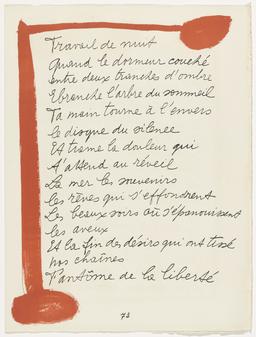 Travail de nuit
Quand le dormeur couché
entre deux tranches d'ombre
Ebranche l'arbre du sommeil
Ta main tourne à l'envers
le disque du silence
Et trame la douleur qui
t'attend au réveil
La mer les souvenirs
les rêves qui s'effondrent
Les beaux soirs où s'épanouissent
les aveux
Et la fin des désirs qui ont tissé
nos chaînes
Fantôme de la liberté
73